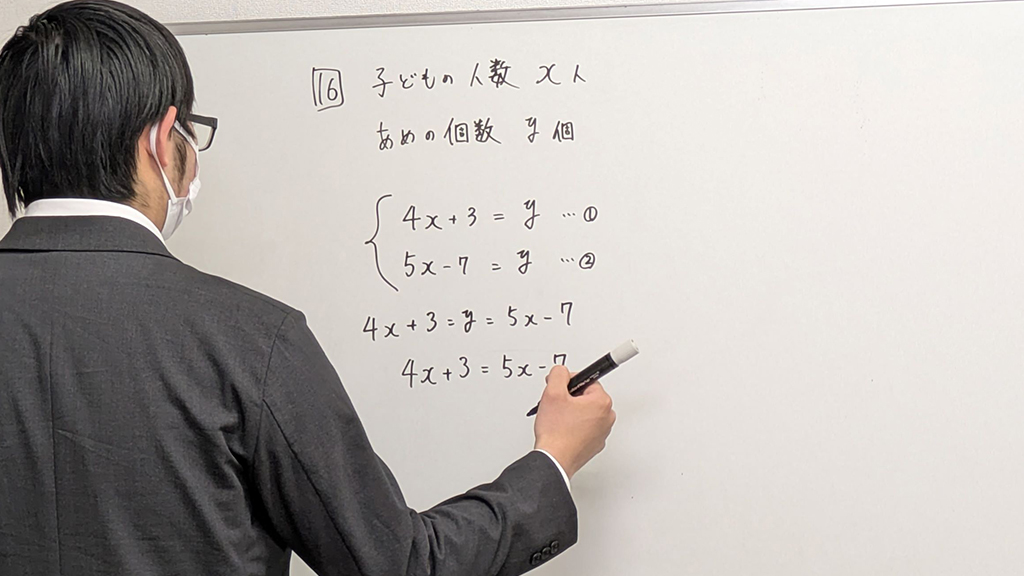 16 子どもの人数 x人
あめの個数 y個
4x+3 = y …①
5x-7 = y …②
4x+3=y=5x-7
4x+3=5x-7